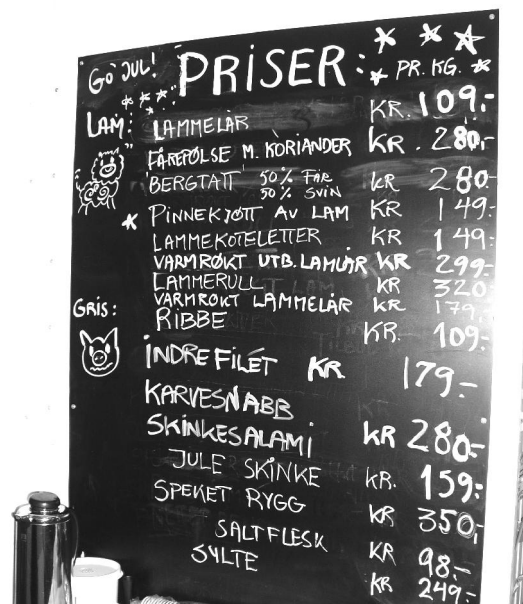 GO' JUL! PRISER: PR. KG.
LAM: LAMMELÅR KR. 109,-
FÅREPØLSE M. KORIANDER KR. 280,-
BERGTATT 50% FÅR 50% SVIN KR 280,-
PINNEKJØTT AV LAM KR 149,-
LAMMEKOTELETTER KR 149,-
VARMRØKT UTB. LAMLÅR KR 299,-
LAMMERULL KR 320,-
VARMRØKT LAMMELÅR KR 179,-
GRIS: RIBBE KR. 109,-
INDREFILÉT KR 179,-
KARVESNABB
SKINKESALAMI KR 280,-
JULE SKINKE KR. 159,-
SPEKET RYGG KR 350,-
SALTFLESK KR 98,-
SYLTE KR 249,-